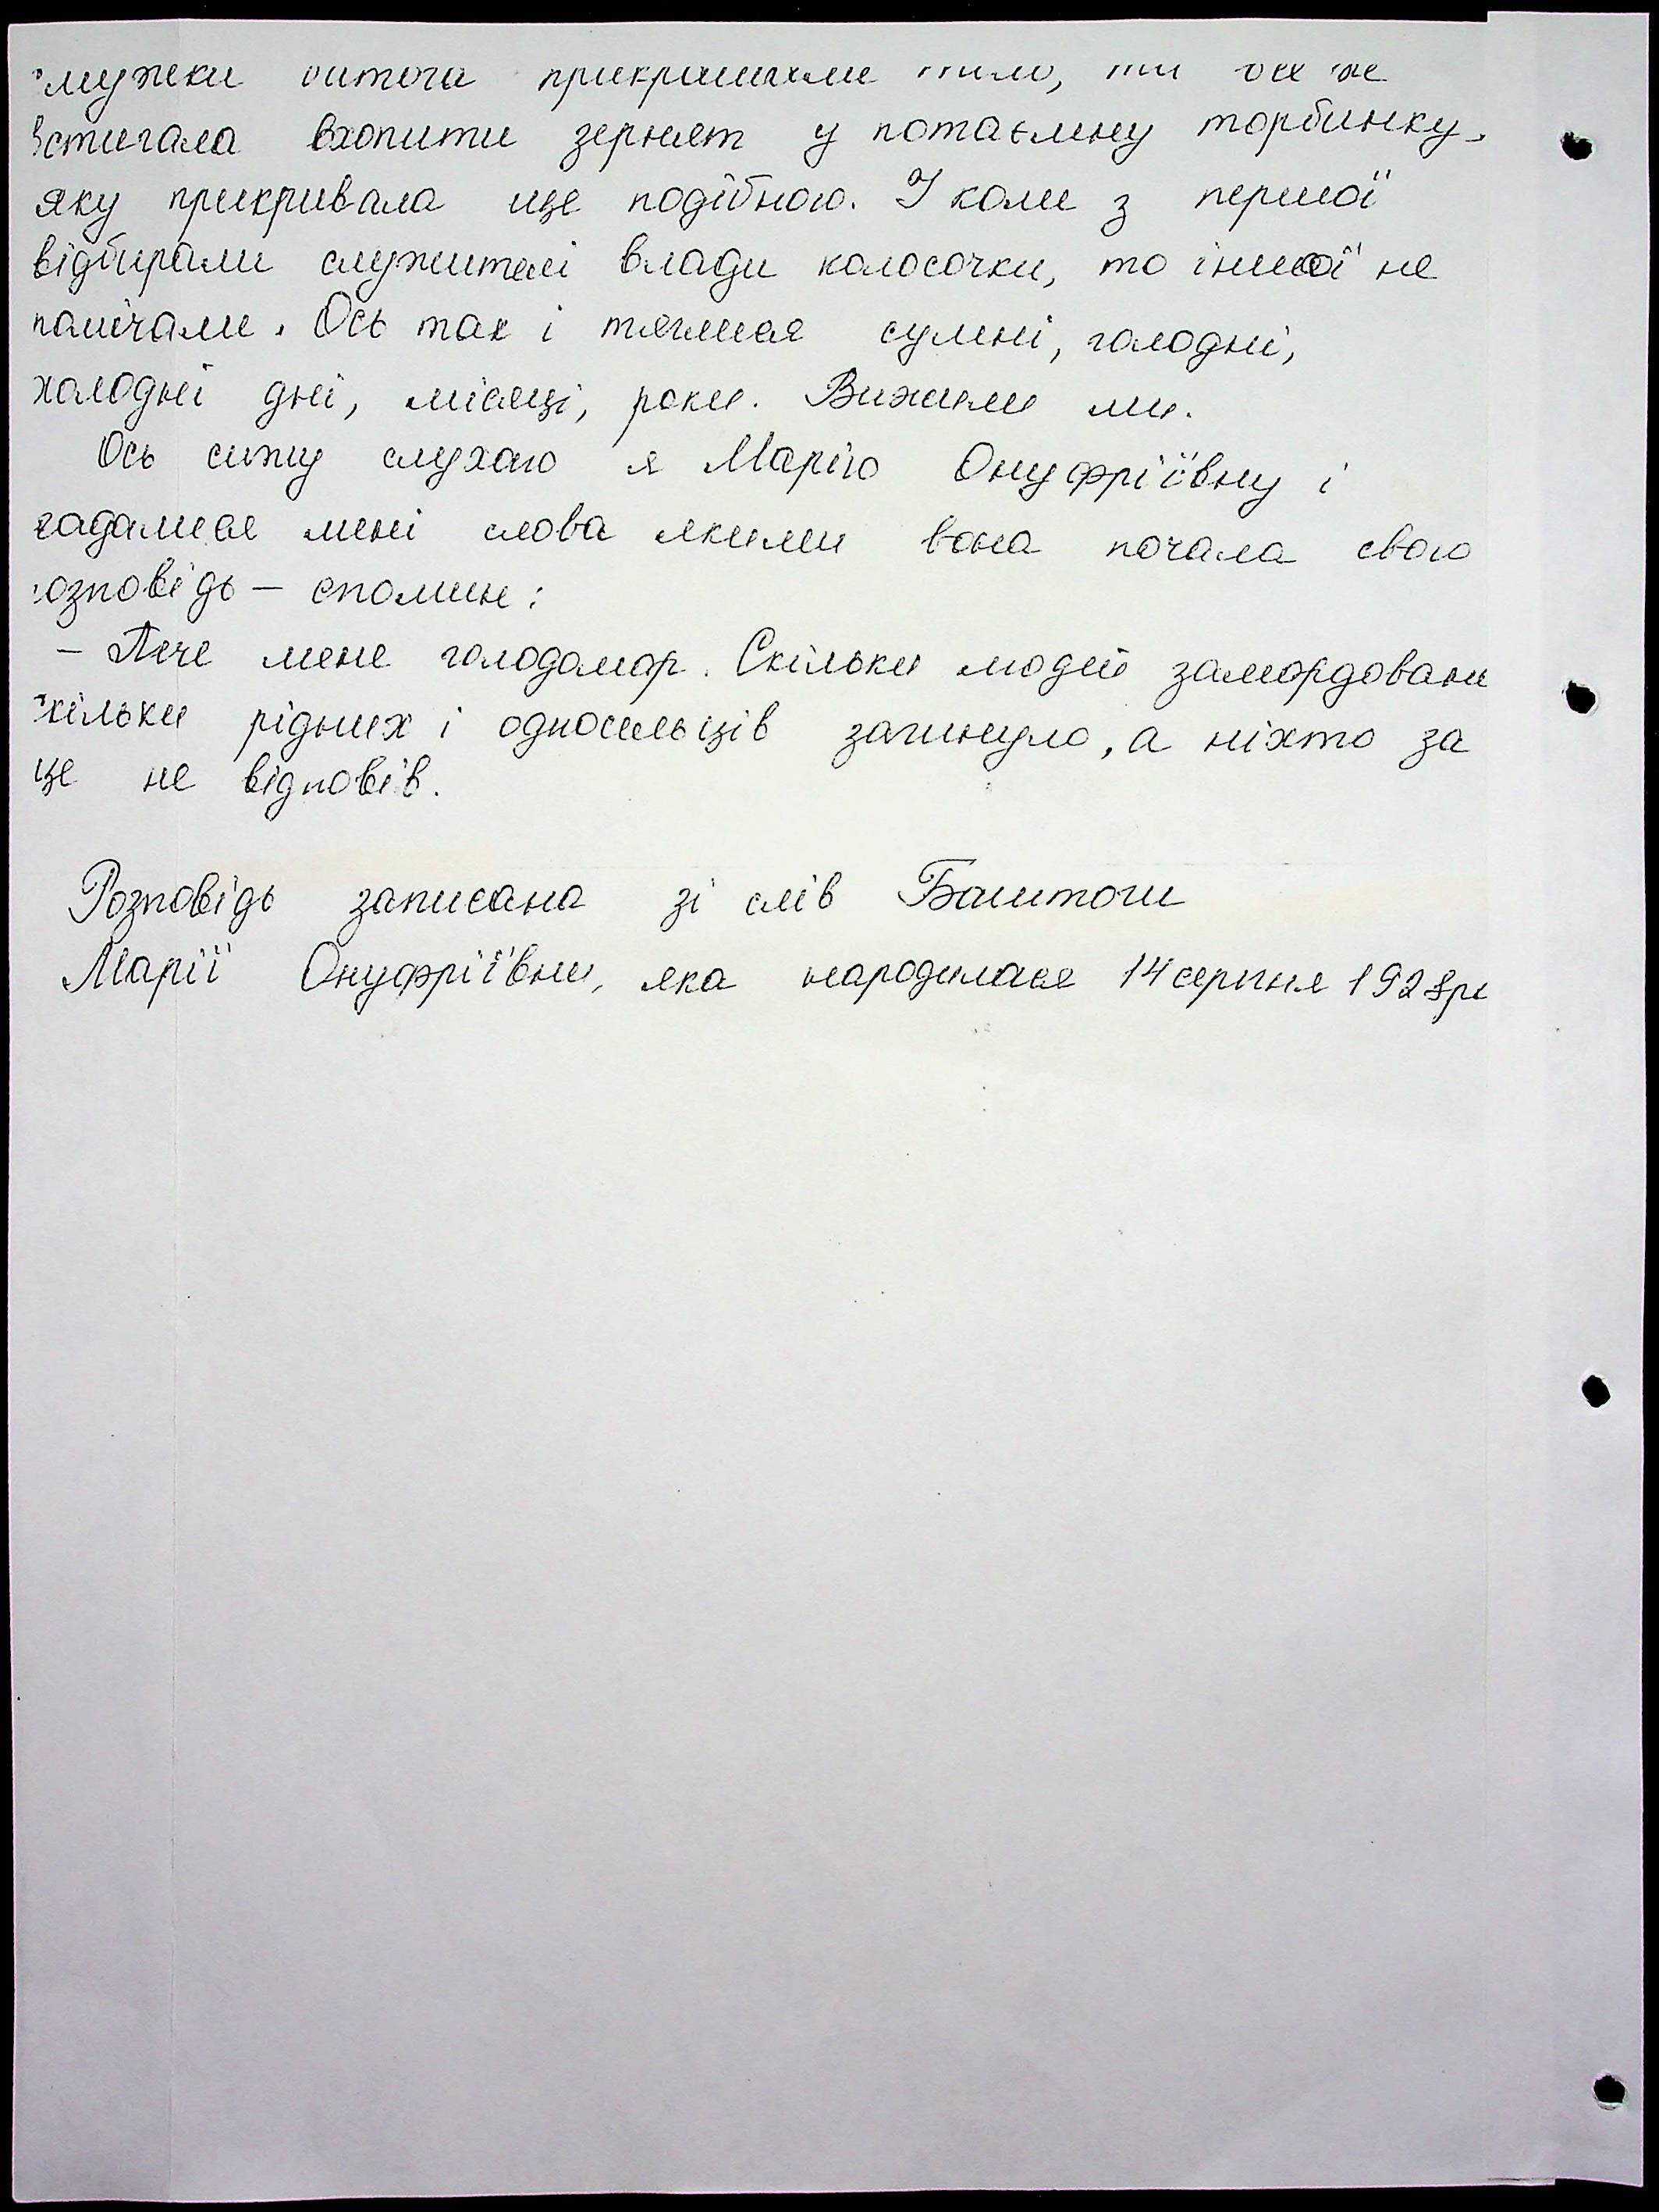 прикрашали
встигала вхопити зернят у потаємну торбинку,
яку прикривала ще подібною. І коли з першої
відбирали служителі влади колосочки, то іншої не
помічали. Ось так і тяглися сумні, голодні,
холодні дні, місяці, роки. Вижили ми.
Ось сижу слухаю я Марію Онуфріївну і
згадалися мені слова якими вона почала свою
розповідь – спомин:
– Пече мене голодомор. Скільки людей замордовани
скільки рідних і односельців загинуло, а ніхто за
це не відповів.
Розповідь записана зі слів Баштоги
Марії Онуфріївни, яка народилася 14 серпня 1928 р